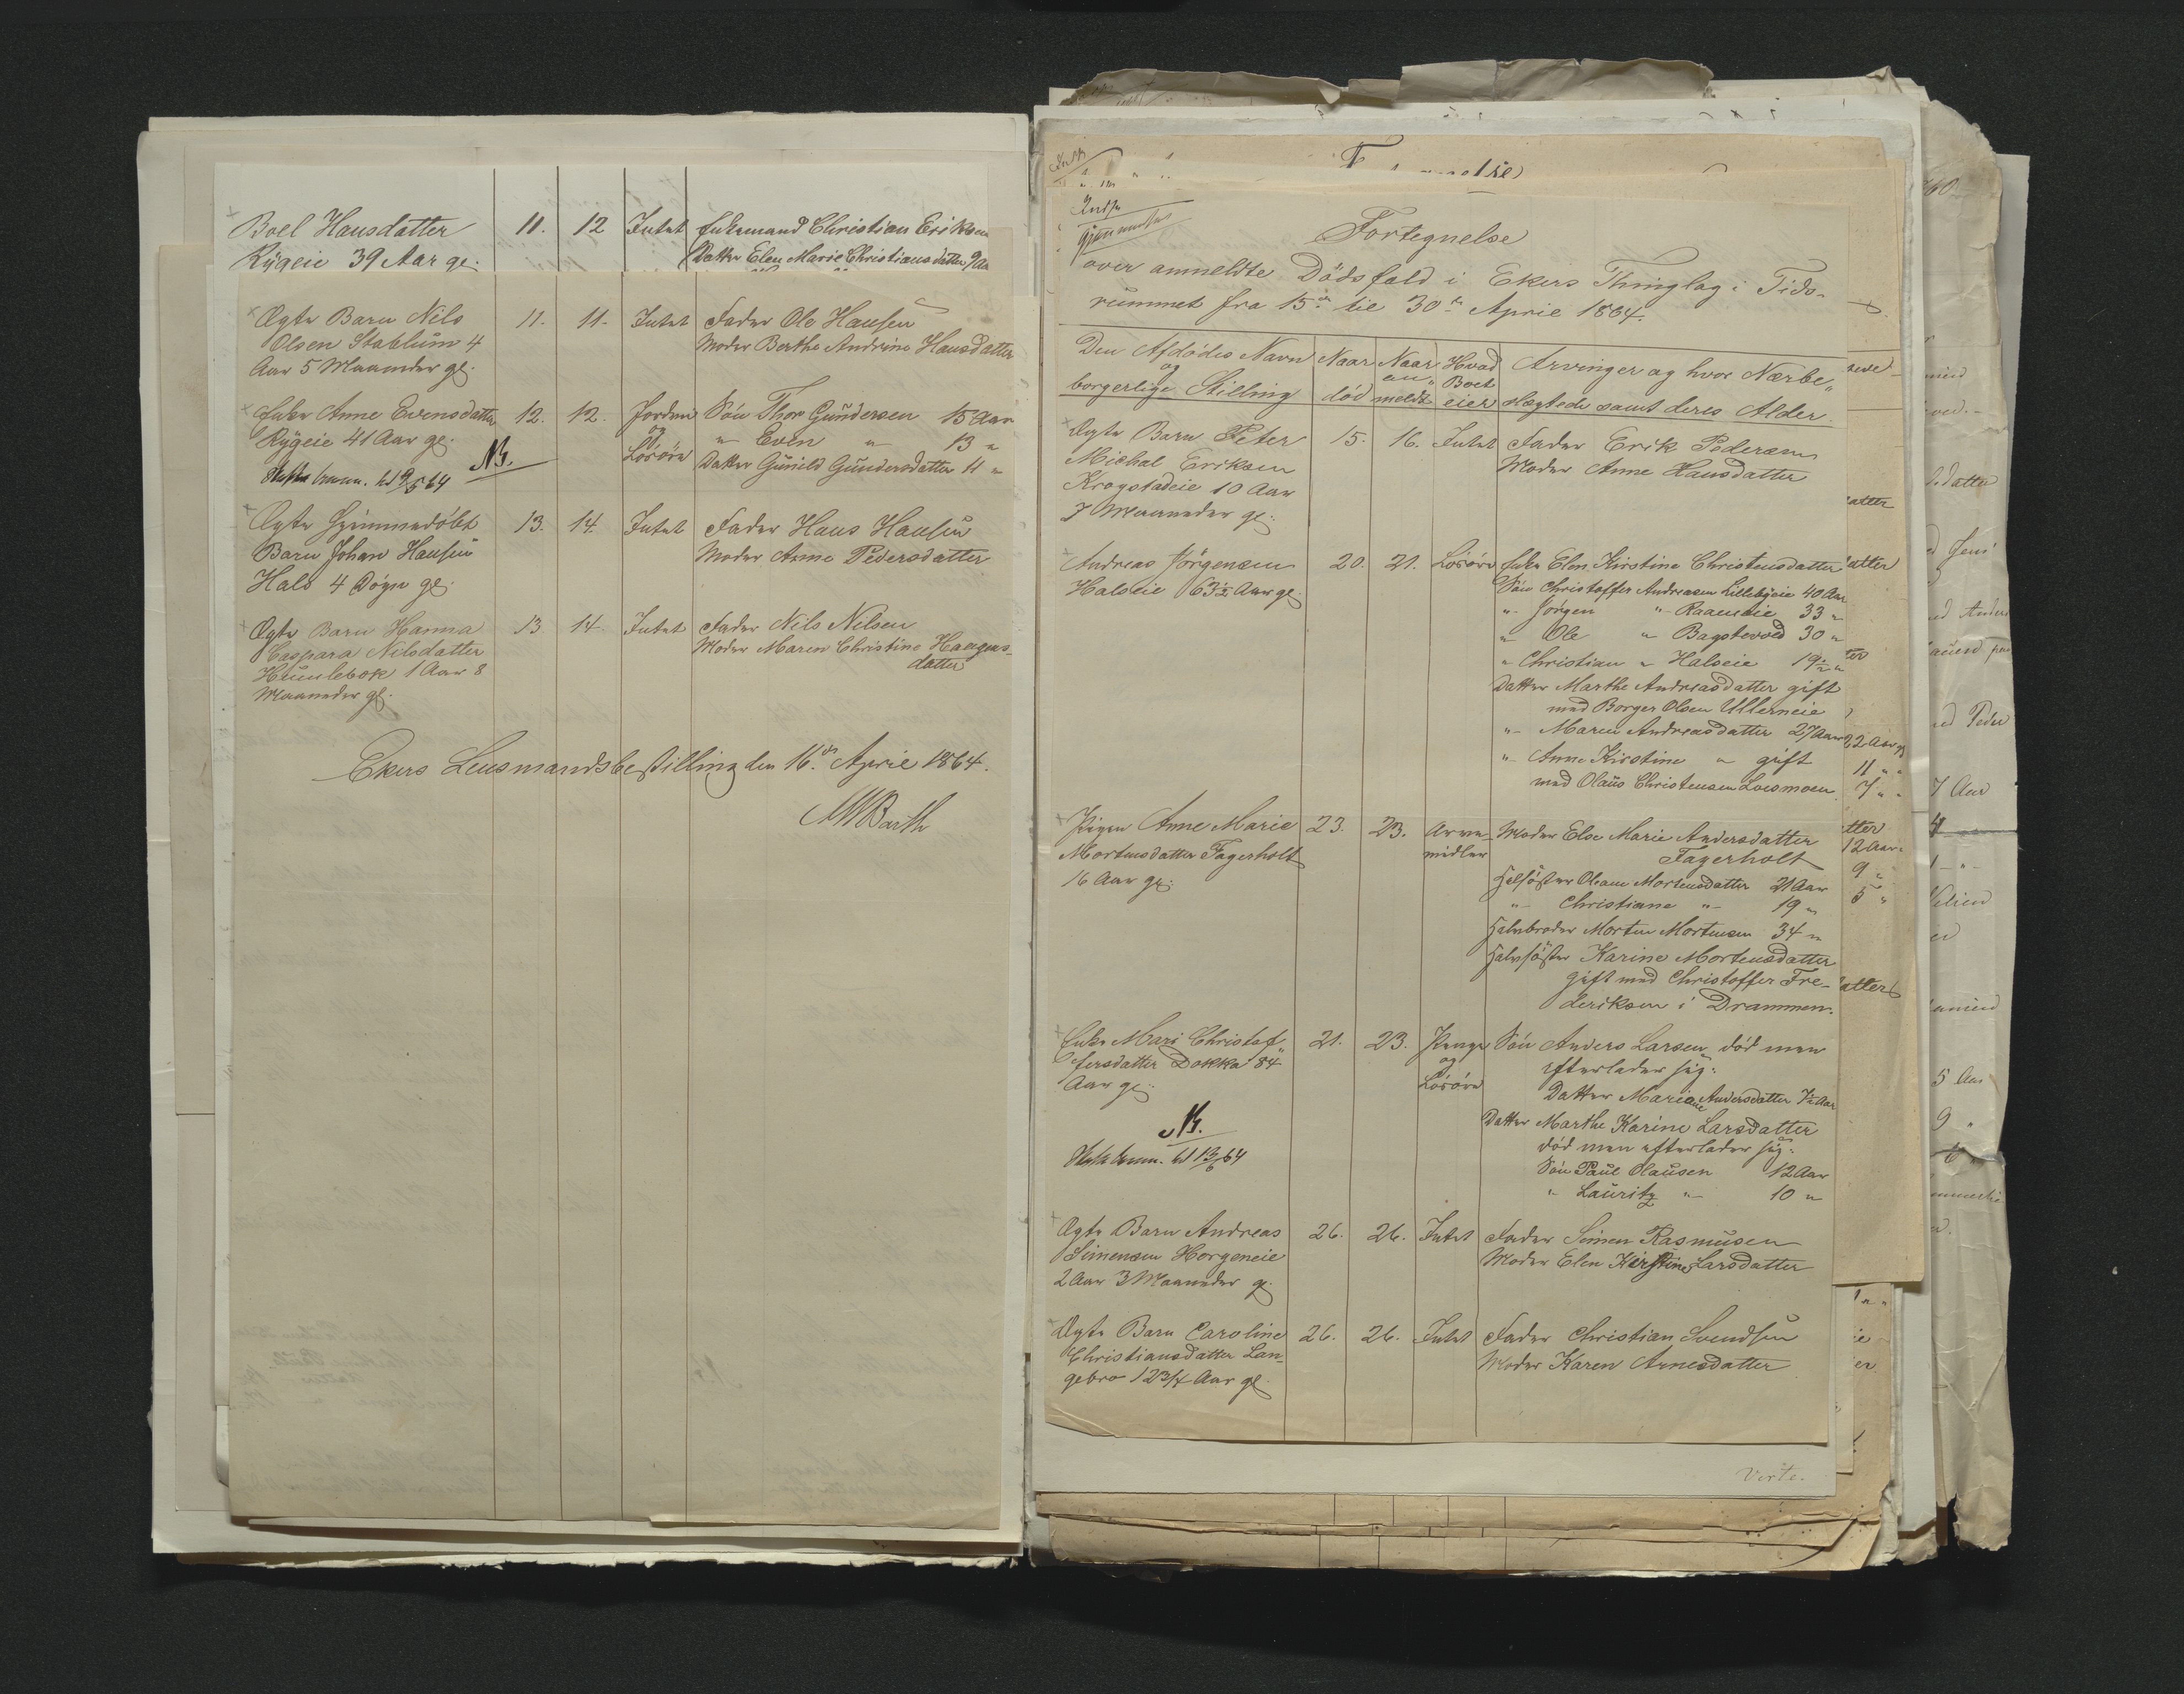 Boel Hansdatter 11. 12 Intet Enkemand Christian Eriksen
Rygeie 39 Aar gl. Datter Elen Marie Christiansdatter 9 Aar
Ægte Barn Nils 11. 11. Intet Fader Ole Hansen
Olsen Stablum 4 Moder Berthe Andrine Hansdatter
Aar 5 Maaneder gl.
Enke Anne Evensdatter 12. 12. Jordem Søn Thor Gundersen 15 Aar
Rygeie 41 Aar gl. og " Even " 13 "
NB. Løsøre Datter Gunild Gundersdatter 11 "
9/5 64
Ægte Hjemmedøbt 13. 14. Intet Fader Hans Hansen
Barn Johan Hansen Moder Anne Pedersdatter
Hals 4 Døgn gl.
Ægte Barn Hanna 13 14. Intet Fader Nils Nilsen
Caspara Nilsdatter Moder Maren Christine Haagens-
Humlebek 1 Aar 8 datter
Maaneder gl.
Ekers Lensmandsbestilling den 16de April 1864.
MWBarth
Fortegnelse
over anmeldte Dødsfald i Ekers Thinglag i Tids-
rummet fra 15de til 30te April 1864.
Den Afdødes Navn Naar Naar Hvad Arvinger og hvor Nærbe-
og an- Boet
borgerlige Stilling død meldt eier slægtede samt deres Alder.
Ægte Barn Peter 15. 16. Intet Fader Erik Pedersen
Michal Eriksen Moder Anne Hansdatter
Krogstadeie 10 Aar
7 Maaneder gl.
Andreas Jörgensen 20. 21. Løsøre Enke Elen Kirstine Christensdatter
Halseie 63½ Aar gl. Søn Christoffer Andreasen Lillebyeie 40 Aar
" Jörgen " Raaeneie 33 "
" Ole " Bagstevold 30 "
" Christian " Halseie 19½ "
Datter Marthe Andreasdatter gift
med Borger Olsen Ullerneie
" Maren Andreasdatter 27 Aar
" Anne Kirstine " gift
med Olaus Christensen Loesmoen
Pigen Anne Marie 23. 23. Arve- Moder Else Marie Andersdatter
Mortensdatter Fagerholt midler Fagerholt
16 Aar gl. Helsøster Oleane Mortensdatter 21 Aar
" Christiane " 19 "
Halvbroder Morten Mortensen 34 "
Halvsøster Karine Mortensdatter
gift med Christoffer Fre-
deriksen i Drammen.
Enke Mari Christof- 21. 23. Penge Søn Anders Larsen død men
fersdatter Dokka 84 og efterlader sig:
Aar gl. Løsøre Datter Mariane Andersdatter 7½ Aar
NB. Datter Marthe Karine Larsdatter
13/6 64 død men efterlader sig:
Søn Paul Olausen 12 Aar
" Lauritz " 10 "
Ægte Barn Andreas 26. 26. Intet Fader Simen Rasmusen
Simensen Horgeneie Moder Elen Kirstine Larsdatter
2 Aar 3 Maaneder gl.
Ægte Barn Caroline 26. 26. Intet Fader Christian Svendsen
Christiansdatter Lan- Moder Karen Arnesdatter
gebro 12 3/4 Aar gl.
Verte.